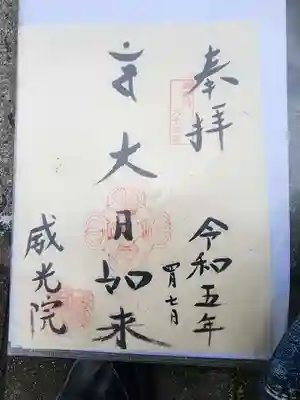 奉拝
令和五年
四月七日
大日如来
威光院